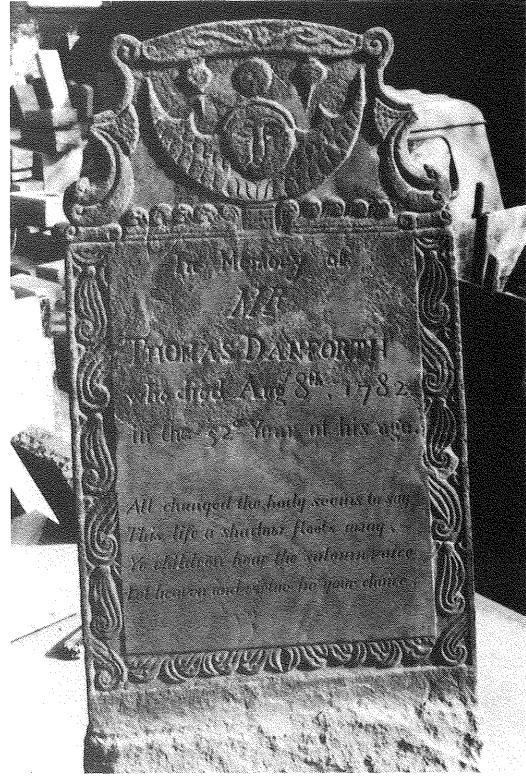 In Memory of
MR
THOMAS DANFORTH
who died Aug 8th, 1782
in the 52d Year of his age.
All changed the body seems to say
This life a shadow fleets away
Ye children hear the solumn voice
Let heaven and be your choice